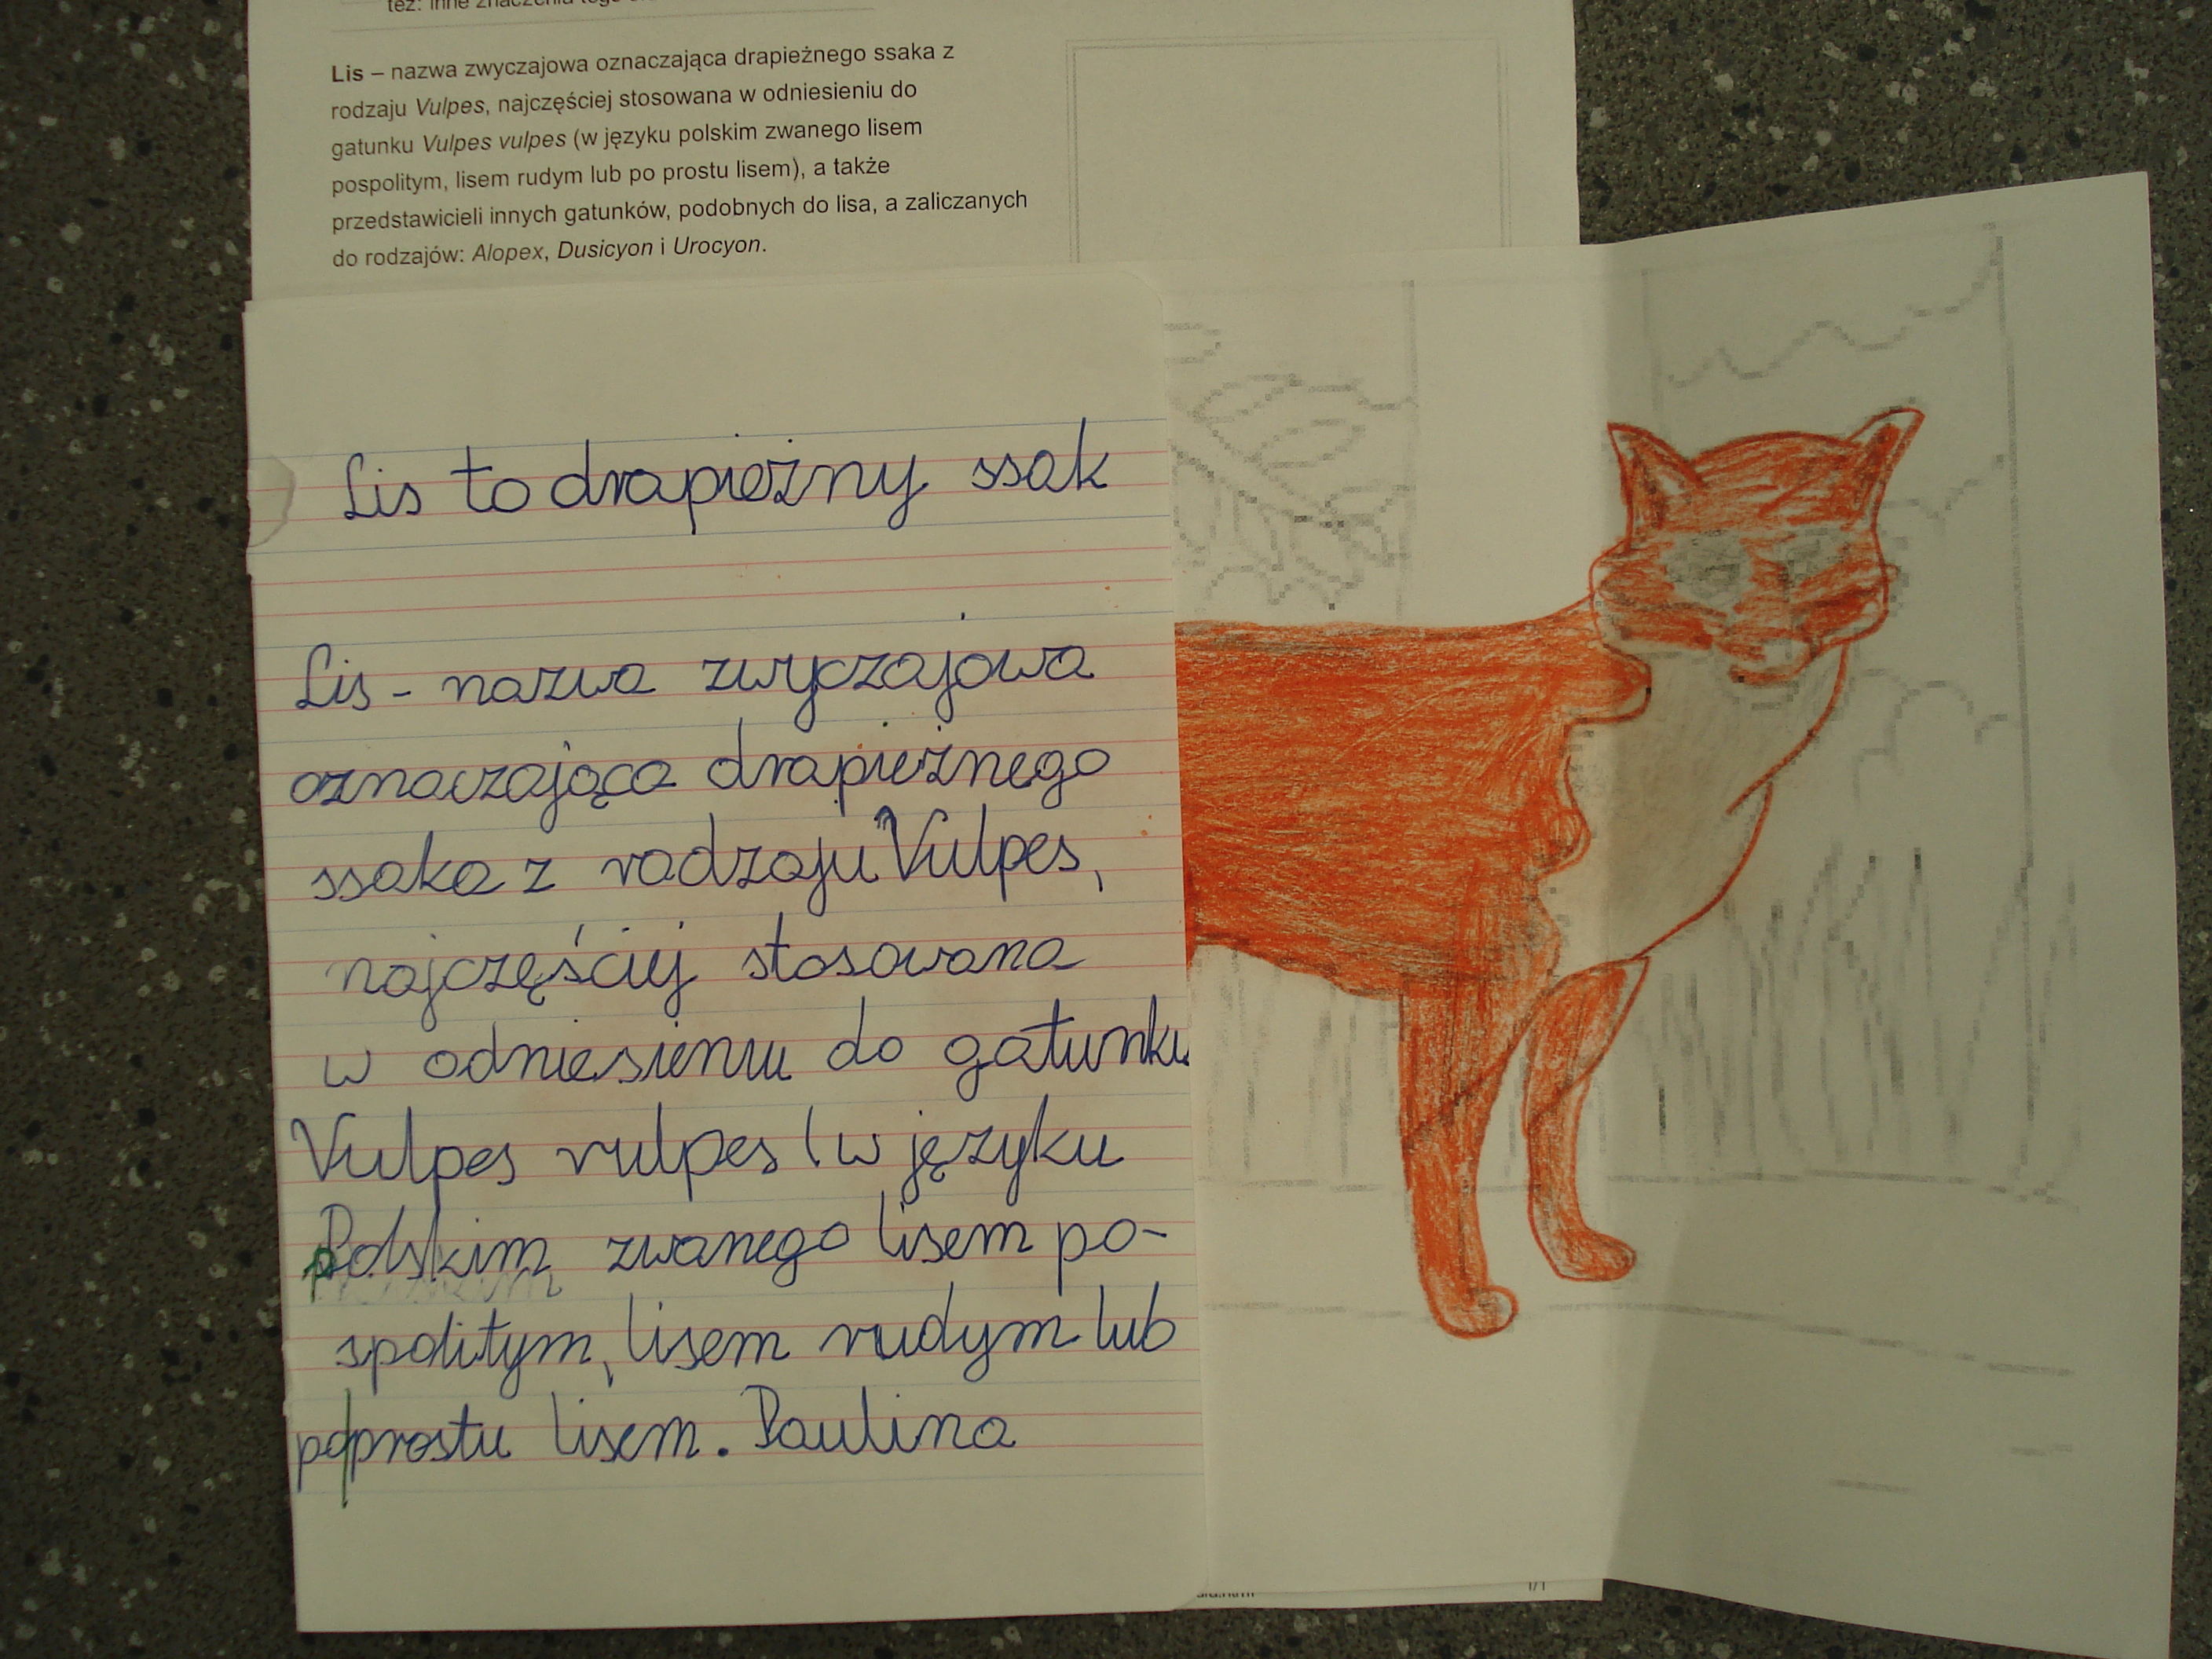 też: inne znaczenia tego
Lis – nazwa zwyczajowa oznaczająca drapieżnego ssaka z
rodzaju Vulpes, najczęściej stosowana w odniesieniu do
gatunku Vulpes vulpes (w języku polskim zwanego lisem
pospolitym, lisem rudym lub po prostu lisem), a także
przedstawicieli innych gatunków, podobnych do lisa, a zaliczanych
do rodzajów: Alopex, Dusicyon i Urocyon.
Lis to drapieżny ssak
Lis - nazwa zwyczajowa
oznaczająca drapieżnego
ssaka z rodzaju Vulpes,
najczęściej stosowana
w odniesieniu do gatunku
Vulpes vulpes (w języku
Polskim zwanego lisem po-
spolitym, lisem rudym lub
poprostu lisem. Paulina
1/1